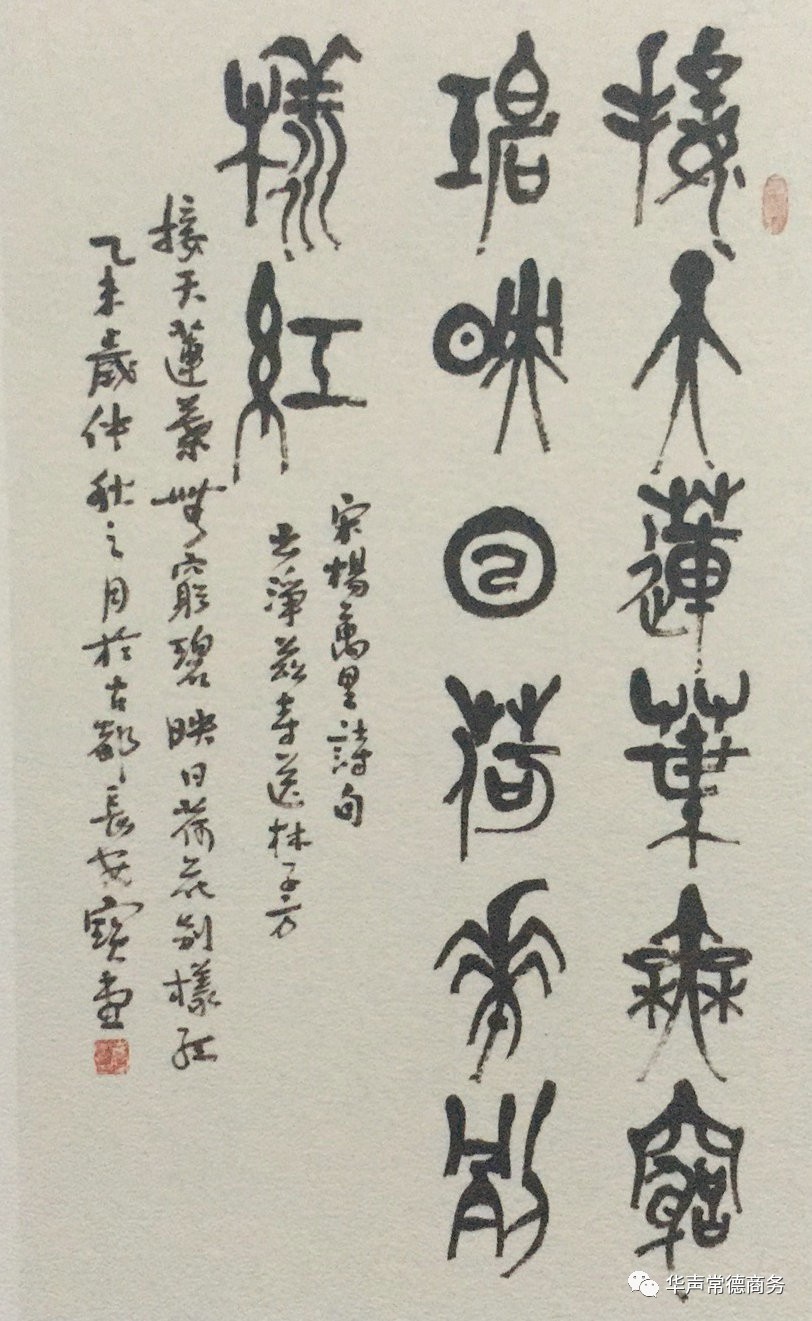 接天蓮葉無窮
碧映日荷華別
樣紅
宋楊萬里詩句
出淨慈寺送林子方
接天蓮葉無窮碧映日荷花別樣紅
乙未歲仲秋之月於古都長安寶堂
华声常德商务